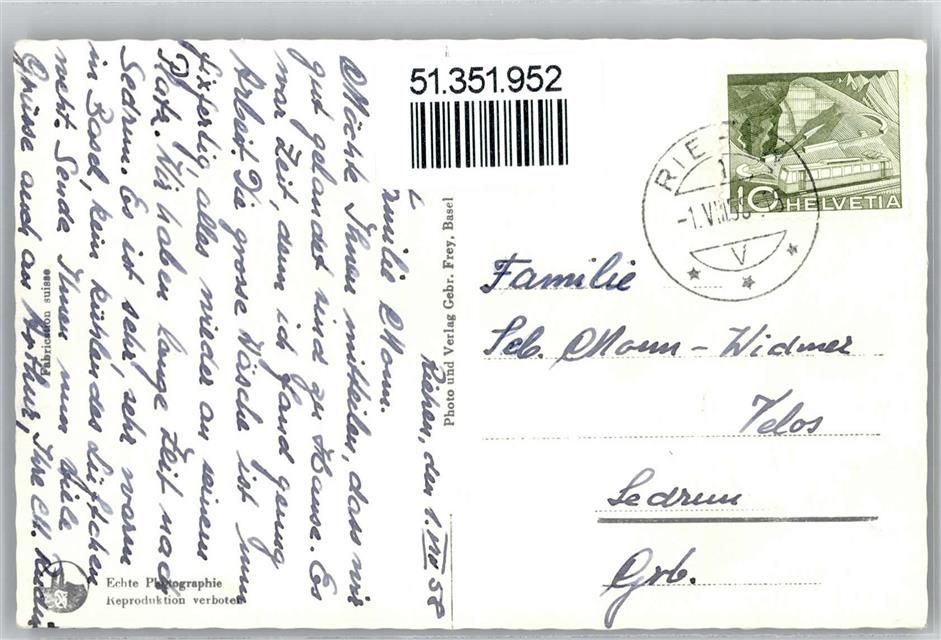 51.351.952
RIE
1
-1.VIII.58
V
10 HELVETIA
Riehen, den 1. VIII 58
milie Monn.
Möchte Ihnen mitteilen, dass wir
gut gelandet sind zu Hause. Es
war Zeit, denn ich fand genug
Arbeit. Die grosse Wäsche ist nun
fixfertig, alles wieder an seinem
Platz. Wir haben lange Zeit nach
Sedrun. Es ist sehr, sehr warm
in Basel, kein kühlendes Lüftchen
weht. Sende Ihnen nun viele
Grüsse auch an Arthur, Ihre M.
Familie
Seb. Monn-Widmer
Velos
Sedrun
Grb.
Photo und Verlag Gebr. Frey, Basel
Fabrication suisse
Echte Photographie
Reproduktion verboten